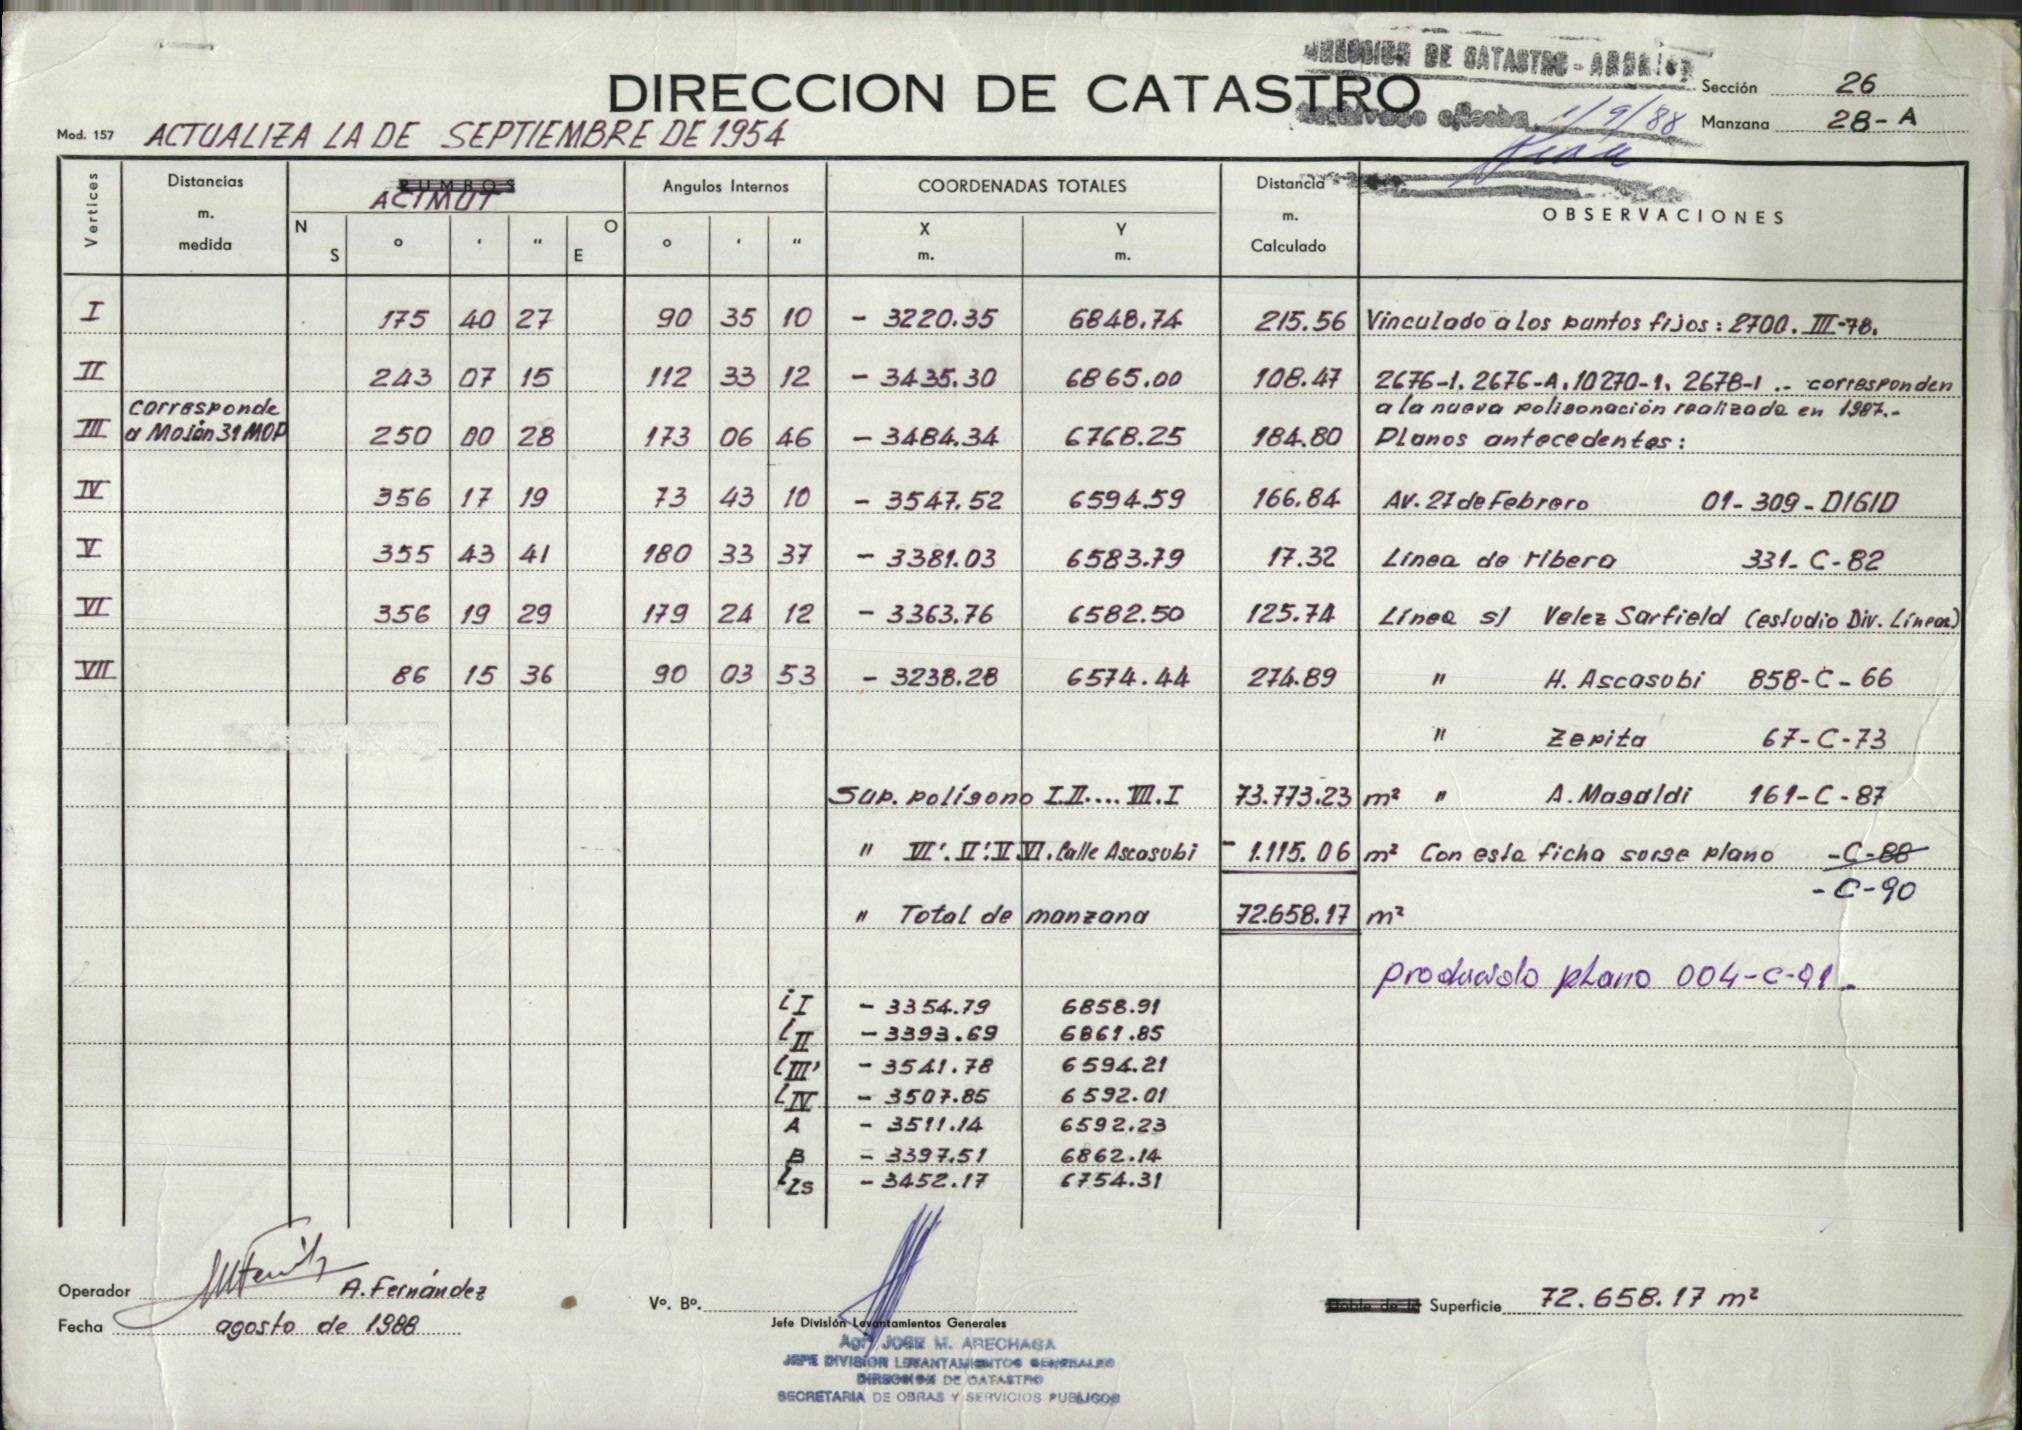 DIRECCION DE CATASTRO - ARCHIVO
DIRECCION DE CATASTRO
Sección 26
1/9/88
Manzana 28-A
Mod. 157 ACTUALIZA LA DE SEPTIEMBRE DE 1954
Vertices Distancias m. medida RUMBOS ACIMUT Angulos Internos COORDENADAS TOTALES Distancia m. Calculado OBSERVACIONES
N S ° ' " O E ° ' " X m. Y m.
I 175 40 27 90 35 10 - 3220.35 6848.74 215.56 Vinculado a los puntos fijos: 2700. III-78.
II 243 07 15 112 33 12 - 3435.30 6865.00 108.47 2676-1. 2676-A. 10270-1. 2678-1 .- corresponden
corresponde a la nueva poligonación realizada en 1987.-
III a Mojón 31 MOP 250 00 28 173 06 46 - 3484.34 6768.25 184.80 Planos antecedentes:
IV 356 17 19 73 43 10 - 3547.52 6594.59 166.84 Av. 27 de Febrero 01-309-DIGID
V 355 43 41 180 33 37 - 3381.03 6583.79 17.32 Línea de ribera 331-C-82
VI 356 19 29 179 24 12 - 3363.76 6582.50 125.74 Línea s/ Velez Sarfield (estudio Div. Líneas)
VII 86 15 36 90 03 53 - 3238.28 6574.44 274.89 " H. Ascasubi 858-C-66
" Zepita 67-C-73
Sup. polígono I.II....VII.I 73.773.23 m² " A. Magaldi 161-C-87
" VI'.V'.V.VI. Calle Ascasubi - 1.115.06 m² Con esta ficha surge plano -C-88
-C-90
" Total de manzana 72.658.17 m²
producido plano 004-C-91.-
iI - 3354.79 6858.91
iII - 3393.69 6861.85
iIII' - 3541.78 6594.21
iIV - 3507.85 6592.01
A - 3511.14 6592.23
B - 3397.51 6862.14
iZs - 3452.17 6754.31
Operador A. Fernández
Vº. Bº.
Doble de la Superficie 72.658.17 m²
Fecha agosto de 1988
Jefe División Levantamientos Generales
Agr. JOSE M. ARECHAGA
JEFE DIVISION LEVANTAMIENTOS GENERALES
DIRECCION DE CATASTRO
SECRETARIA DE OBRAS Y SERVICIOS PUBLICOS